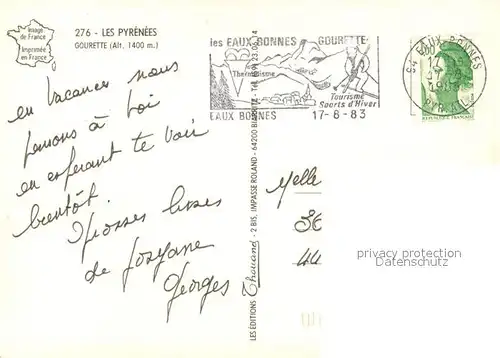 Image
de France
Imprimée
en France
276 - LES PYRÉNÉES
GOURETTE (Alt. 1400 m.)
en vacances nous
pensons à toi
en espérant te voir
bientôt.
Grosses bises
de Josyane
Georges
LES ÉDITIONS Thouand - 2 BIS, IMPASSE ROLAND - 64200 BIARRITZ - Tél. (59) 23.06.14
les EAUX BONNES GOURETTE
Thermalisme
Tourisme
Sports d'Hiver
EAUX BONNES 17-6-83
64 EAUX BONNES
RÉPUBLIQUE FRANÇAISE
Melle
privacy protection
Datenschutz